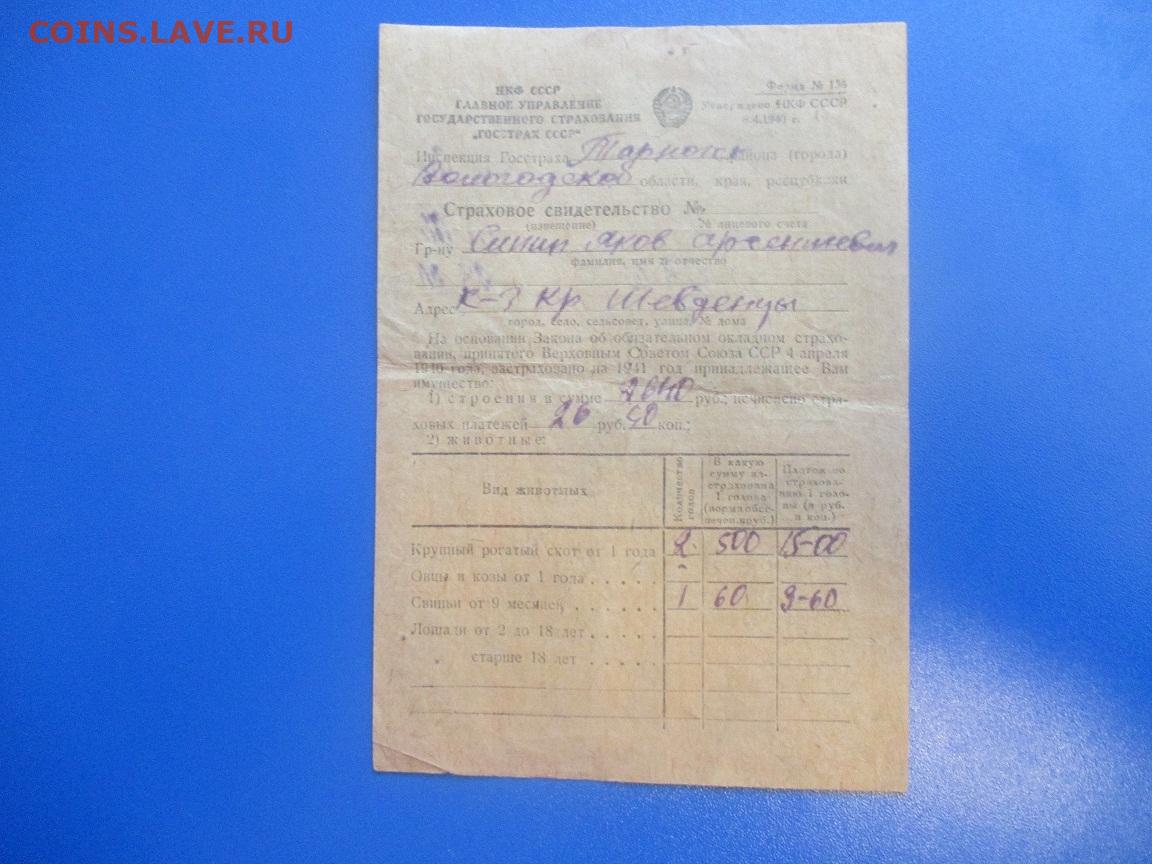 COINS.LAVE.RU
НКФ СССР
ГЛАВНОЕ УПРАВЛЕНИЕ
ГОСУДАРСТВЕННОГО СТРАХОВАНИЯ
„ГОССТРАХ СССР“
Форма № 136
Утверждено НКФ СССР
4.1941 г.
Инспекция Госстраха Тарногск района (города)
Вологодской области, края, республики
Страховое свидетельство №
(извещение) № лицевого счета
Гр-ну Яков Арсениевич
фамилия, имя и отчество
Адрес К-з Кр Шевденцы
город, село, сельсовет, улица, № дома
На основании Закона об обязательном окладном страхо-
вании, принятого Верховным Советом Союза ССР 4 апреля
1940 года, застраховано на 1941 год принадлежащее Вам
имущество:
1) строения в сумме 2640 руб.; исчислено стра-
ховых платежей 26 руб. 40 коп.;
2) животные:
Вид животных
Количество голов
В какую сумму за-
страхована
1 голова
(норма обес-
печен. руб.)
Платеж по
страхова-
нию 1 голо-
вы (в руб.
и коп.)
Крупный рогатый скот от 1 года 2 500 15-00
Овцы и козы от 1 года . . . . . -
Свиньи от 9 месяцев . . . . . . 1 60 3-60
Лошади от 2 до 18 лет . . . . .
„ старше 18 лет . . . . .